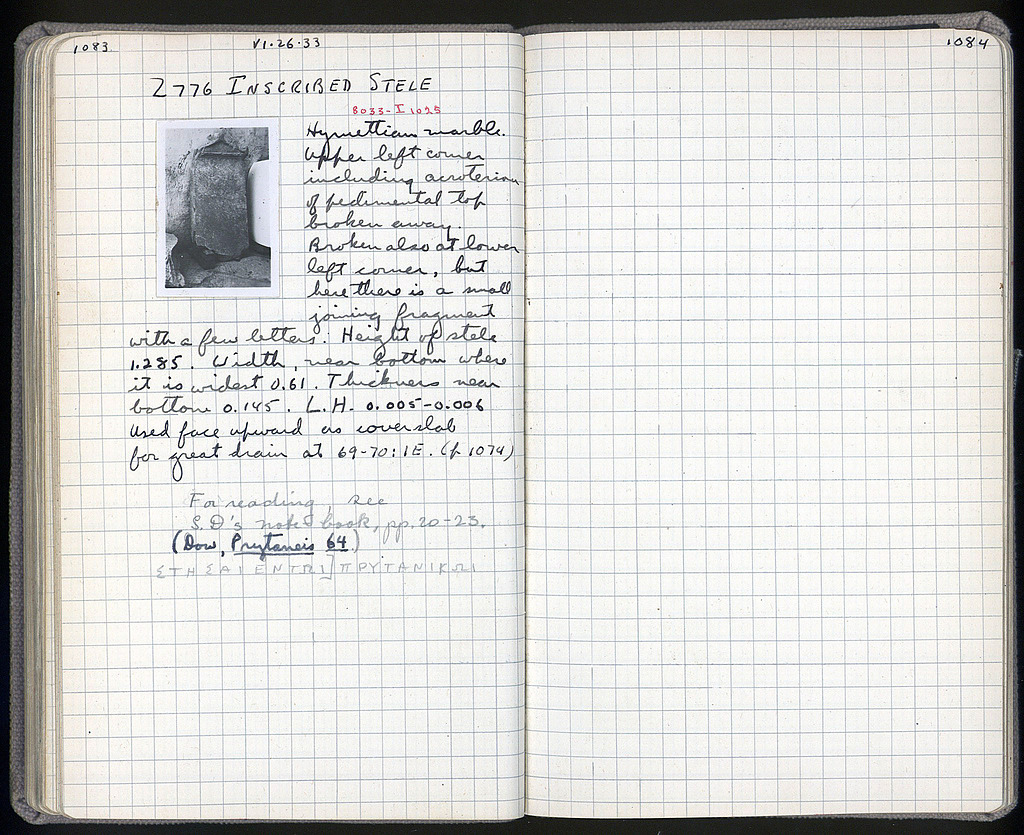 1083
VI·26·33
1084
Z 776 INSCRIBED STELE
8033-I 1025
Hymettian marble.
Upper left corner
including acroterion
of pedimental top
broken away.
Broken also at lower
left corner, but
here there is a small
joining fragment
with a few letters. Height of stele
1.285. Width, near bottom where
it is widest 0.61. Thickness near
bottom 0.145. L.H. 0.005-0.006
Used face upward as cover slab
for great drain at 69-70:IE. (p 1074)
For reading, see
S.D's note book, pp. 20-23.
(Dow, Prytaneis 64)
ΣΤΗΣΑΙ ΕΝ ΤΩΙ] ΠΡΥΤΑΝΙΚΩΙ